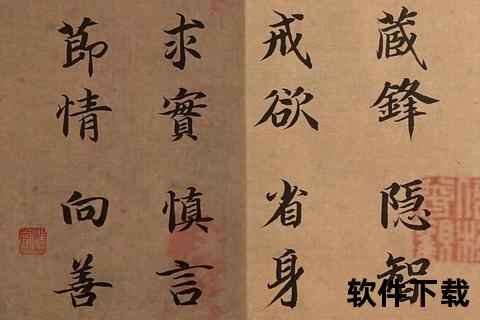 蔵鋒 隐智
戒欲 省身
求實 慎言
節情 向善
软件下载